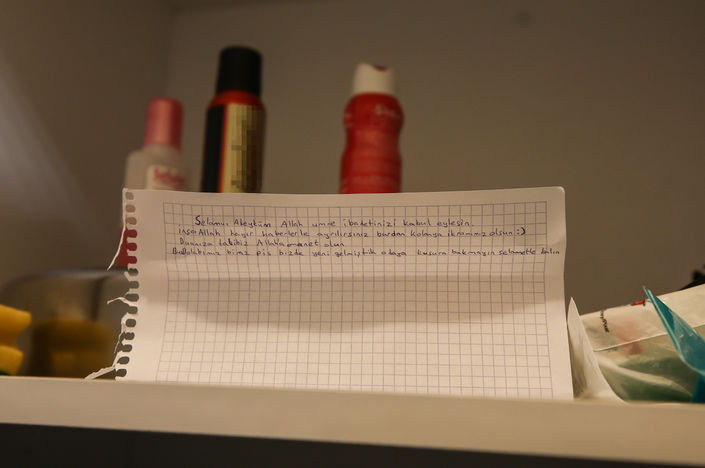 Selamu Aleyküm Allah umre ibadetinizi kabul eylesin.
inşaAllah hayır haberlerle ayrılırsınız burdan kolonya ikramımız olsun :)
Duanıza talibiz Allah'a emanet olun
Buzdolabımız biraz pis bizde yeni gelmiştik odaya kusura bakmayın selametle kalın